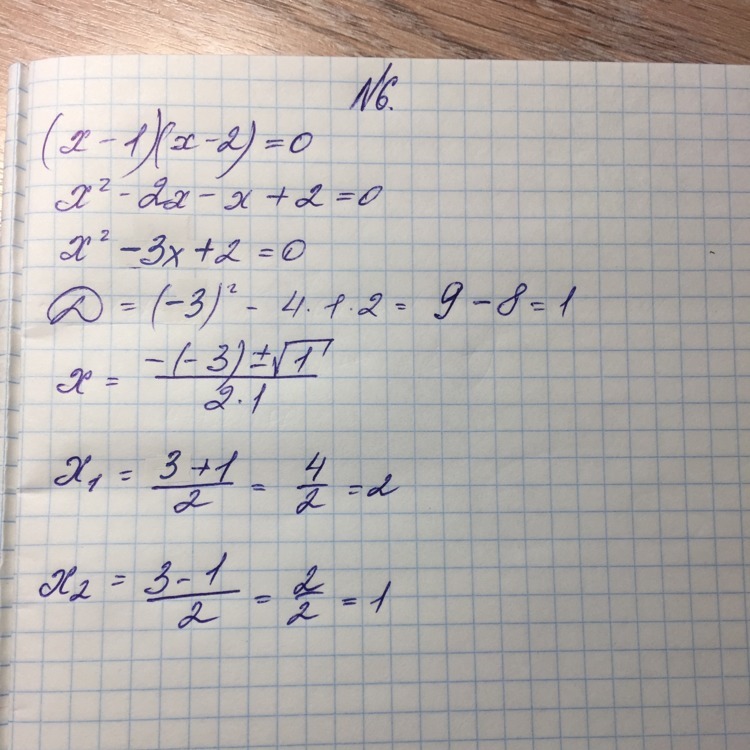 №6.
(x - 1)(x - 2) = 0
x² - 2x - x + 2 = 0
x² - 3x + 2 = 0
D = (-3)² - 4·1·2 = 9 - 8 = 1
x = (-(-3) ± √1) / (2·1)
x₁ = (3+1)/2 = 4/2 = 2
x₂ = (3-1)/2 = 2/2 = 1